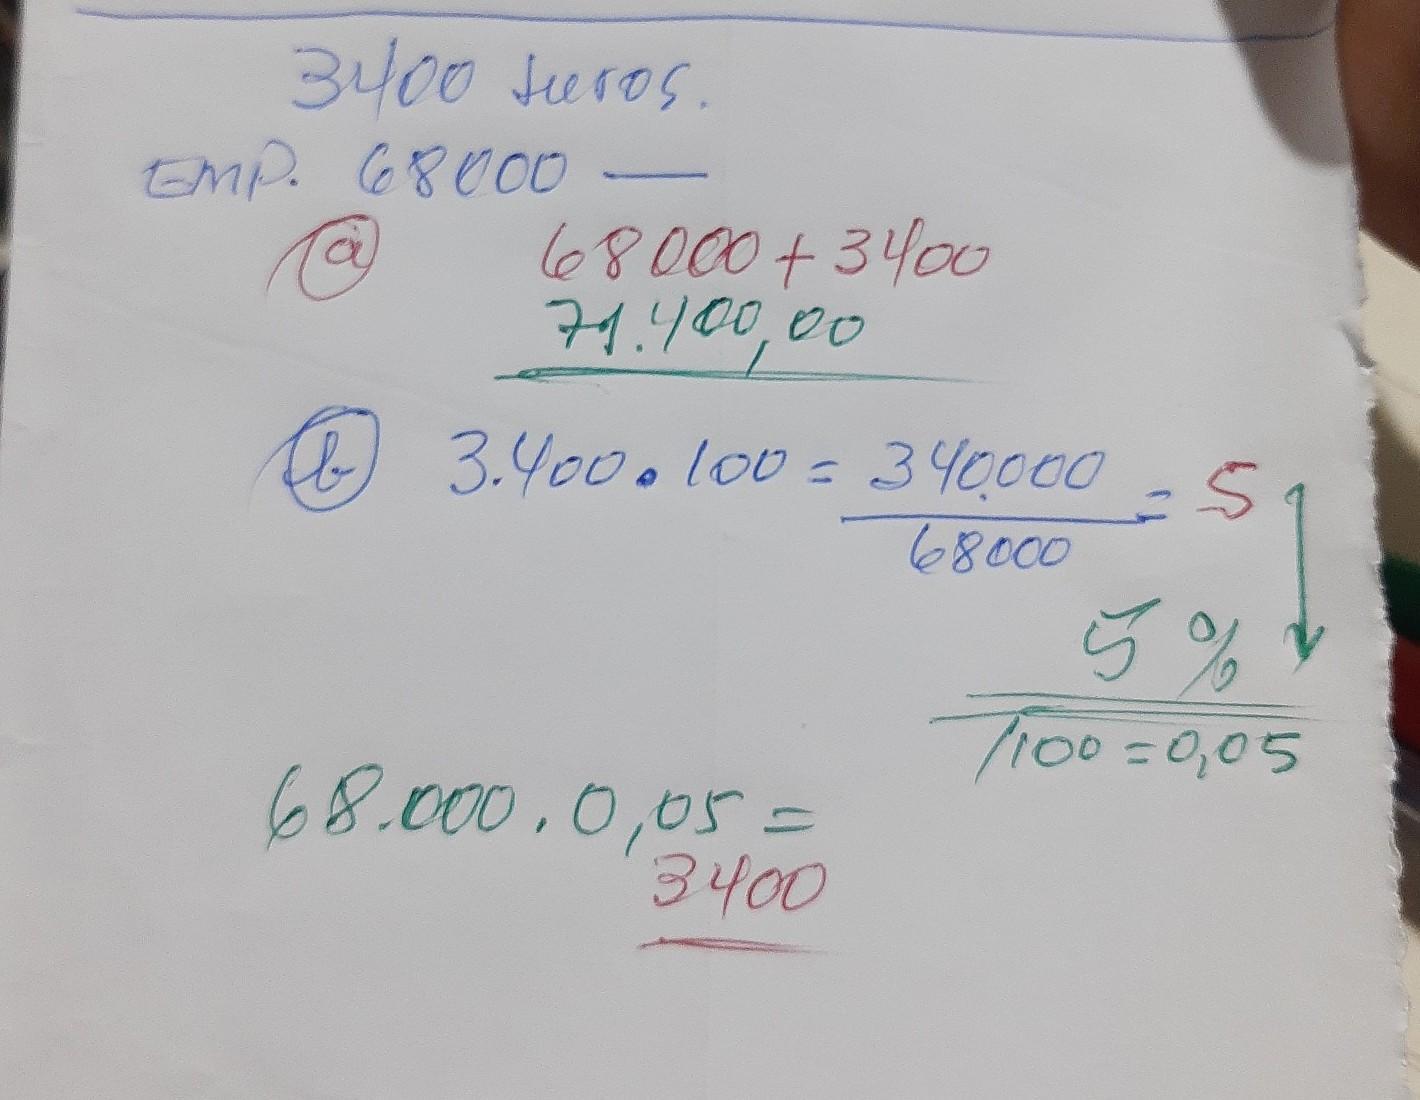 3400 Juros.
EMP. 68000 —
a 68000 + 3400
71.400,00
b 3.400 . 100 = 340.000 / 68000 = 5
5 %
/100 = 0,05
68.000 . 0,05 =
3400